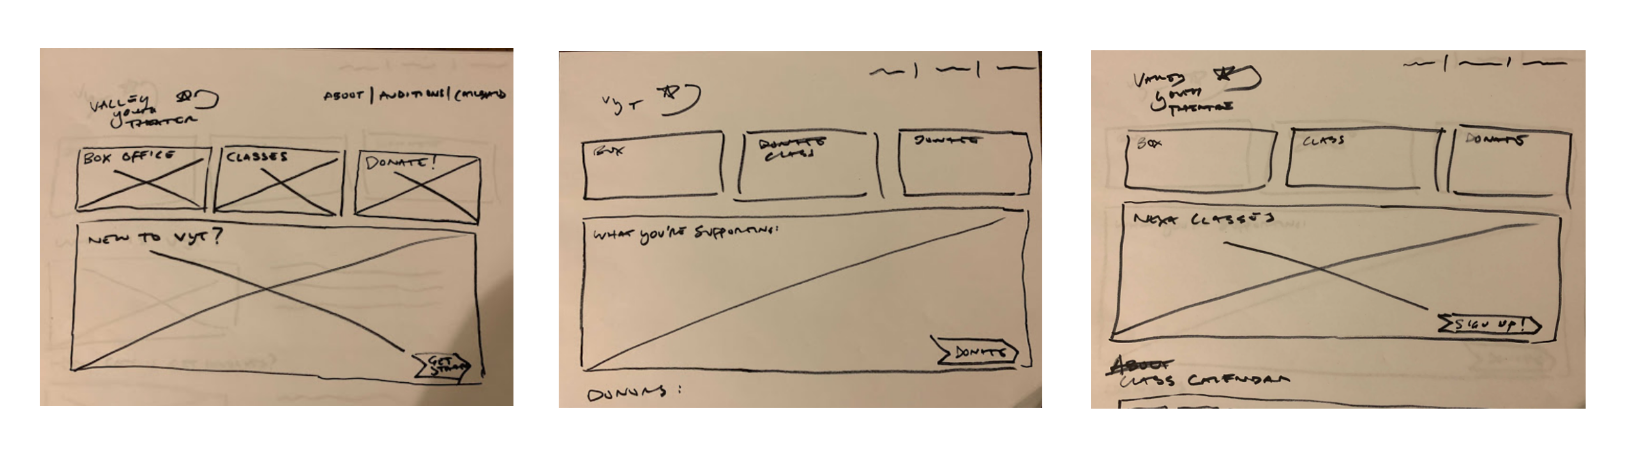 VALLEY
YOUTH
THEATER
ABOUT | AUDITIONS |
BOX OFFICE
CLASSES
DONATE!
NEW TO VYT?
GET
VYT
BOX
DONATE
CLASS
DONATE
WHAT YOU'RE SUPPORTING:
DONATE
DONORS:
VALLEY
YOUTH
THEATRE
BOX
CLASS
DONATE
CLASSES
SIGN UP!
ABOUT
CLASS CALENDAR